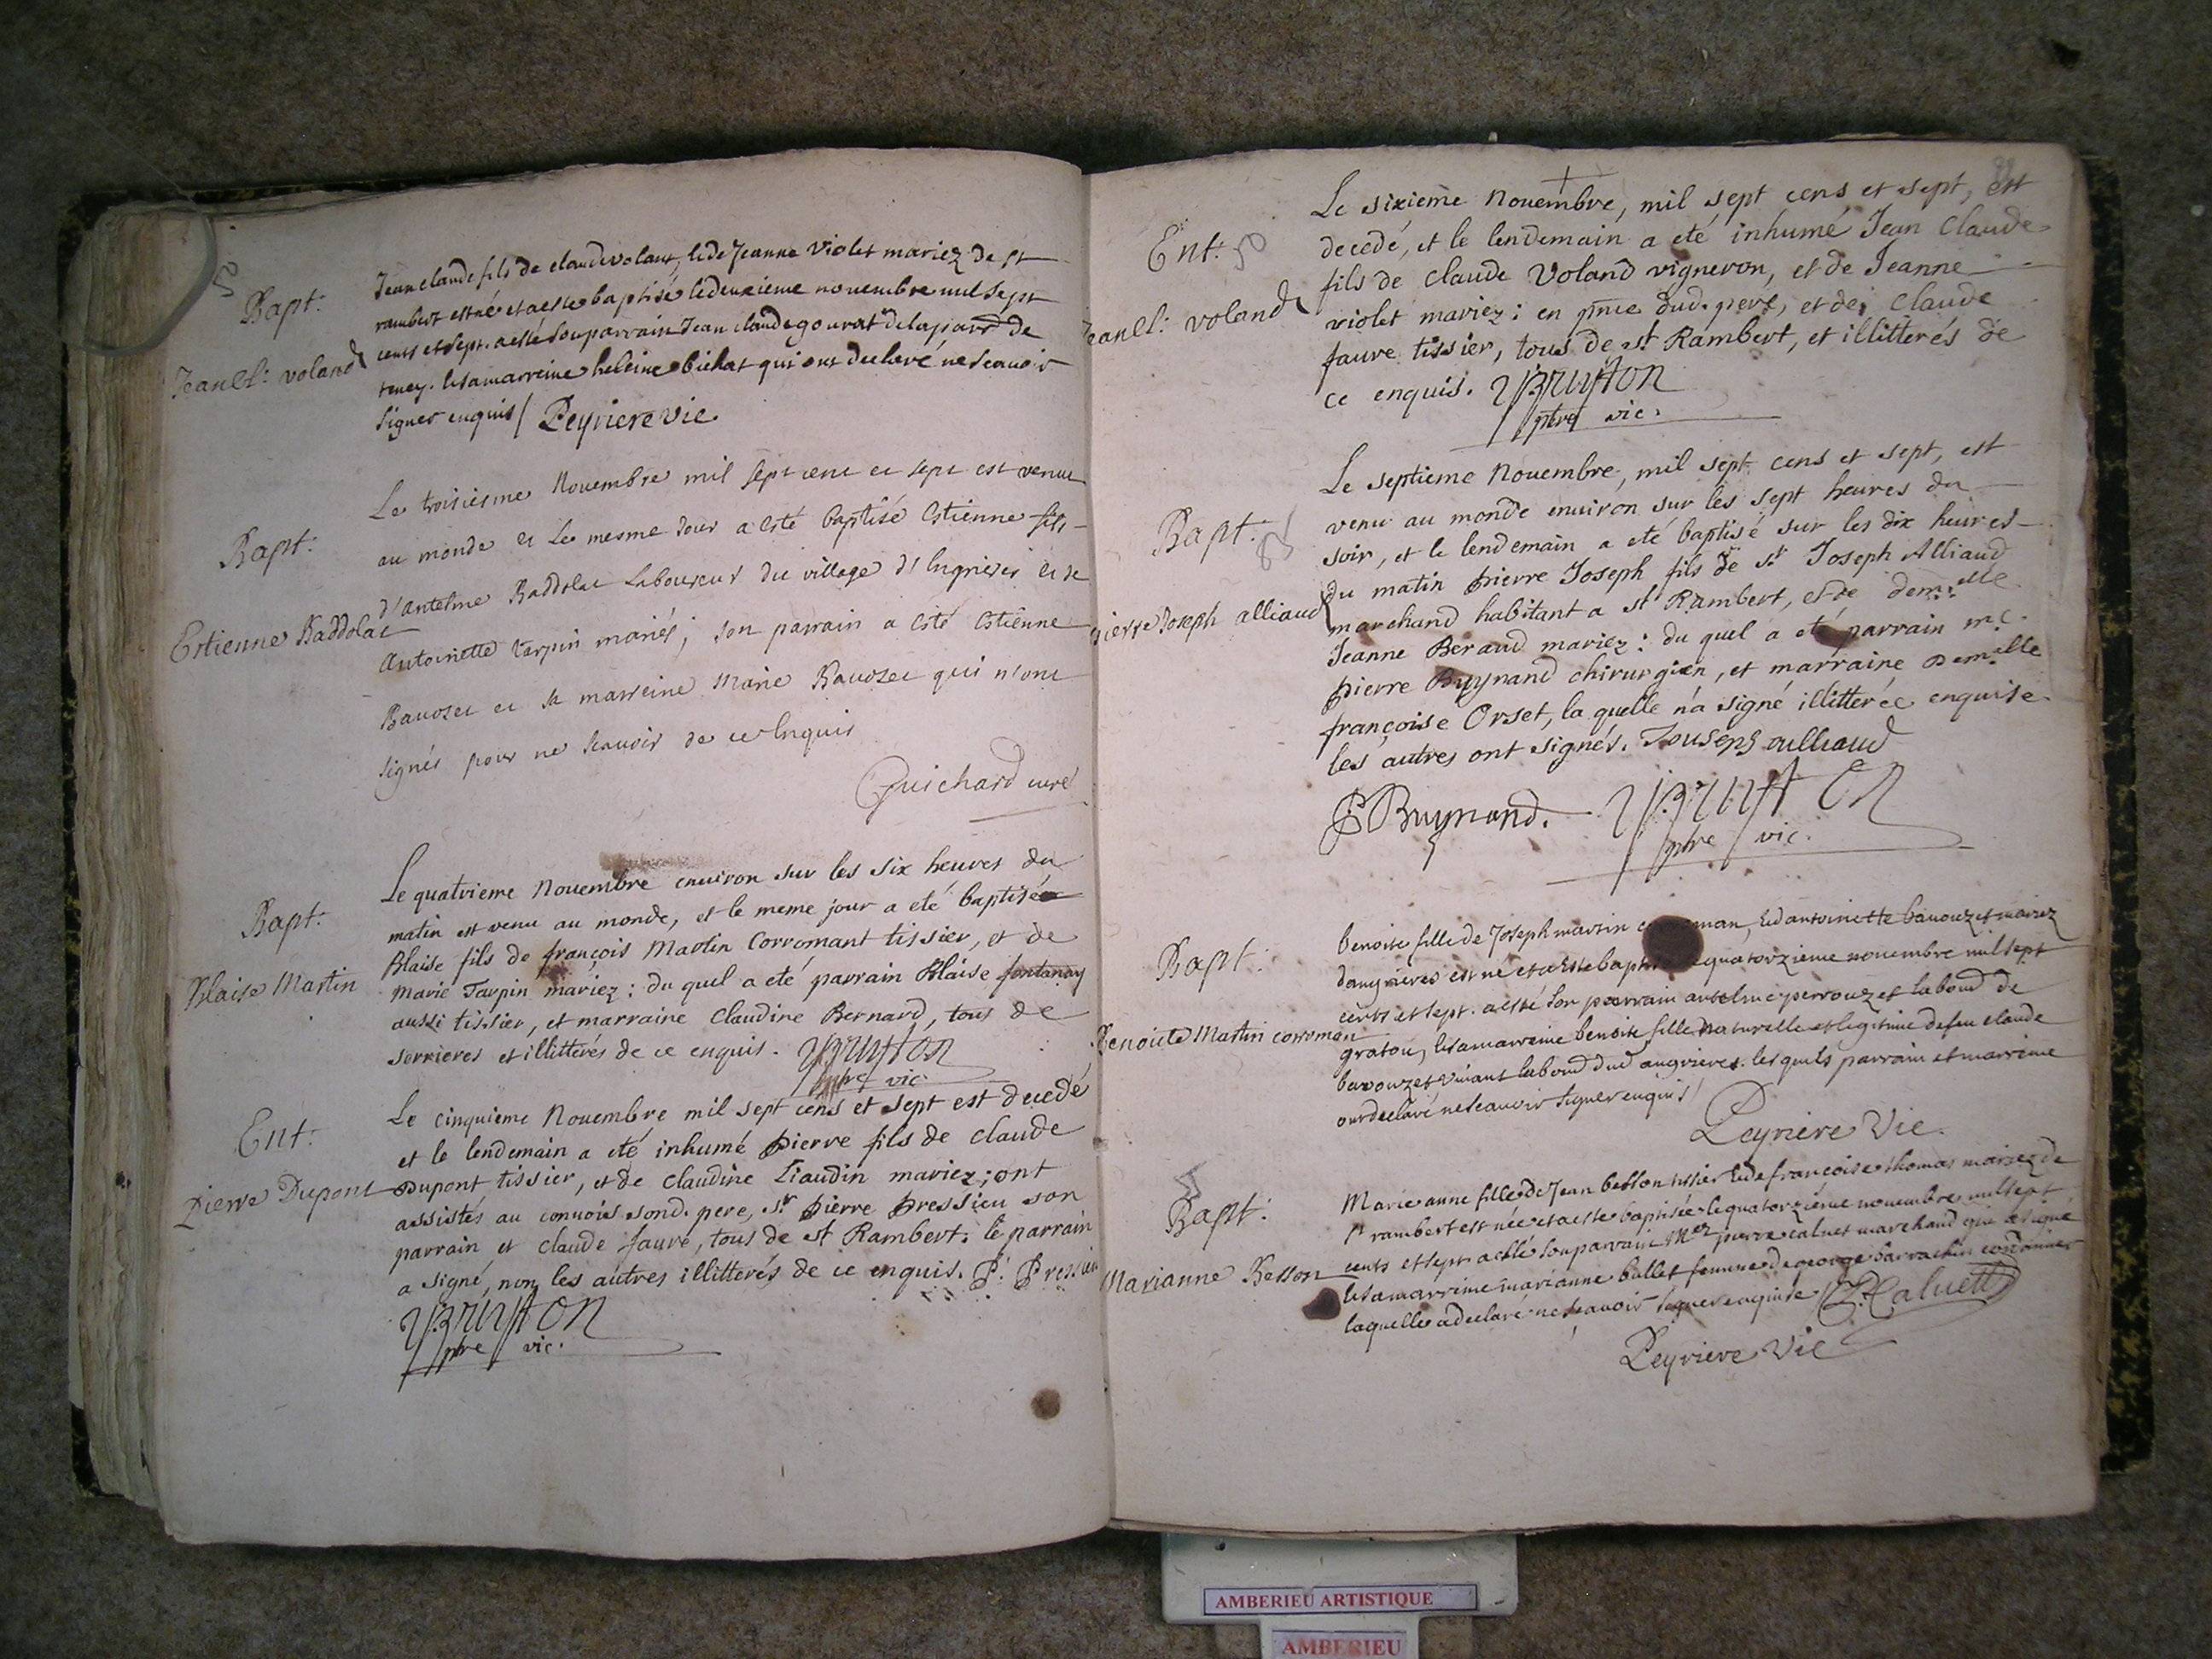 Bapt:
Jean Cl: voland
Jean claude fils de claude volant, et de Jeanne Violet mariez de st
rambert est né et a esté baptisé le deuxieme novembre mil sept
cents et sept. a esté son parrain Jean claude gourat de la par de
teney. et sa marreine heleine bichat qui ont declaré ne scavoir
signer enquis / Peyriere vic
Bapt:
Estienne Baddolat
Le troisiesme Novembre mil sept cent et sept est venu
au monde et le mesme Jour a esté baptisé Estienne fils
d'Antelme Baddolat Laboureur du village d'Ingrieres et de
Antoinette tarpin mariés; son parrain a esté Estienne
Bavozet et sa marreine Marie Bavozet qui n'ont
signés pour ne scavoir de ce Enquis
Guichard curé
Bapt:
Blaise Martin
Le quatrieme Novembre environ sur les six heures du
matin est venu au monde, et le meme jour a eté baptisé
Blaise fils de françois Martin Corromant tissier, et de
Marie Tarpin mariez: du quel a eté parrain Blaise fontanay
aussi tissier, et marraine Claudine Bernard, tous de
serrieres et illitterés de ce enquis. Bruston
ptre vic.
Ent:
Pierre Dupont
Le cinquieme Novembre mil sept cens et sept est decedé
et le lendemain a eté inhumé pierre fils de claude
Dupont tissier, et de claudine Liaudin mariez; ont
assistés au convois sond. pere, sr. pierre pressieu son
parrain et claude faure, tous de st Rambert. le parrain
a signé, non les autres illitterés de ce enquis. P. Pressieu
Bruston
ptre vic.
Ent: 50
Jean Cl: voland
Le sixieme Novembre, mil sept cens et sept, est
decedé, et le lendemain a eté inhumé Jean Claude
fils de claude Voland vigneron, et de Jeanne
violet mariez: en pnce dud. pere, et de claude
faure tissier, tous de st Rambert, et illitterés de
ce enquis. Bruston
ptre vic.
Bapt:
pierre Joseph alliaud
Le septieme Novembre, mil sept cens et sept, est
venu au monde environ sur les sept heures du
soir, et le lendemain a eté baptisé sur les dix heures
du matin pierre Joseph fils de sr. Joseph Alliaud
marchand habitant a st Rambert, et de dem.elle
Jeanne Beraud mariez: du quel a eté parrain me.
pierre Buynand chirurgien, et marraine Dem.elle
françoise Orset, la quelle n'a signé illitterée enquise
les autres ont signés. Jouseph alliaud
P Buynand. Bruston
ptre vic.
Bapt:
Benoite Martin corroman
benoite fille de Joseph martin man, et d'antoinette bavouzet mariez
dangrieres est né et a esté quatorzieme novembre mil sept
cents et sept. a esté son parrain antelme perrouzet labour de
gratou, et sa marreine benoite fille naturelle et legitime de feu claude
bavouzet vivant labour dud angrieres. lesquels parrain et marreine
ont declaré ne scavoir signer enquis /
Peyriere Vic.
Bapt:
Marianne Besson
Marie anne fille de Jean besson tissier et de francoise thomas mariez de
st rambert est née et a esté baptisée le quatorzieme novembre mil sept
cents et sept. a esté son parrain pierre calvet marchand qui a signé
et sa marreine marianne bullet femme de george sarrachin cordonnier
laquelle a declaré ne scavoir signer enquise P. Caluett
Peyriere Vic
AMBERIEU ARTISTIQUE
AMBERIEU